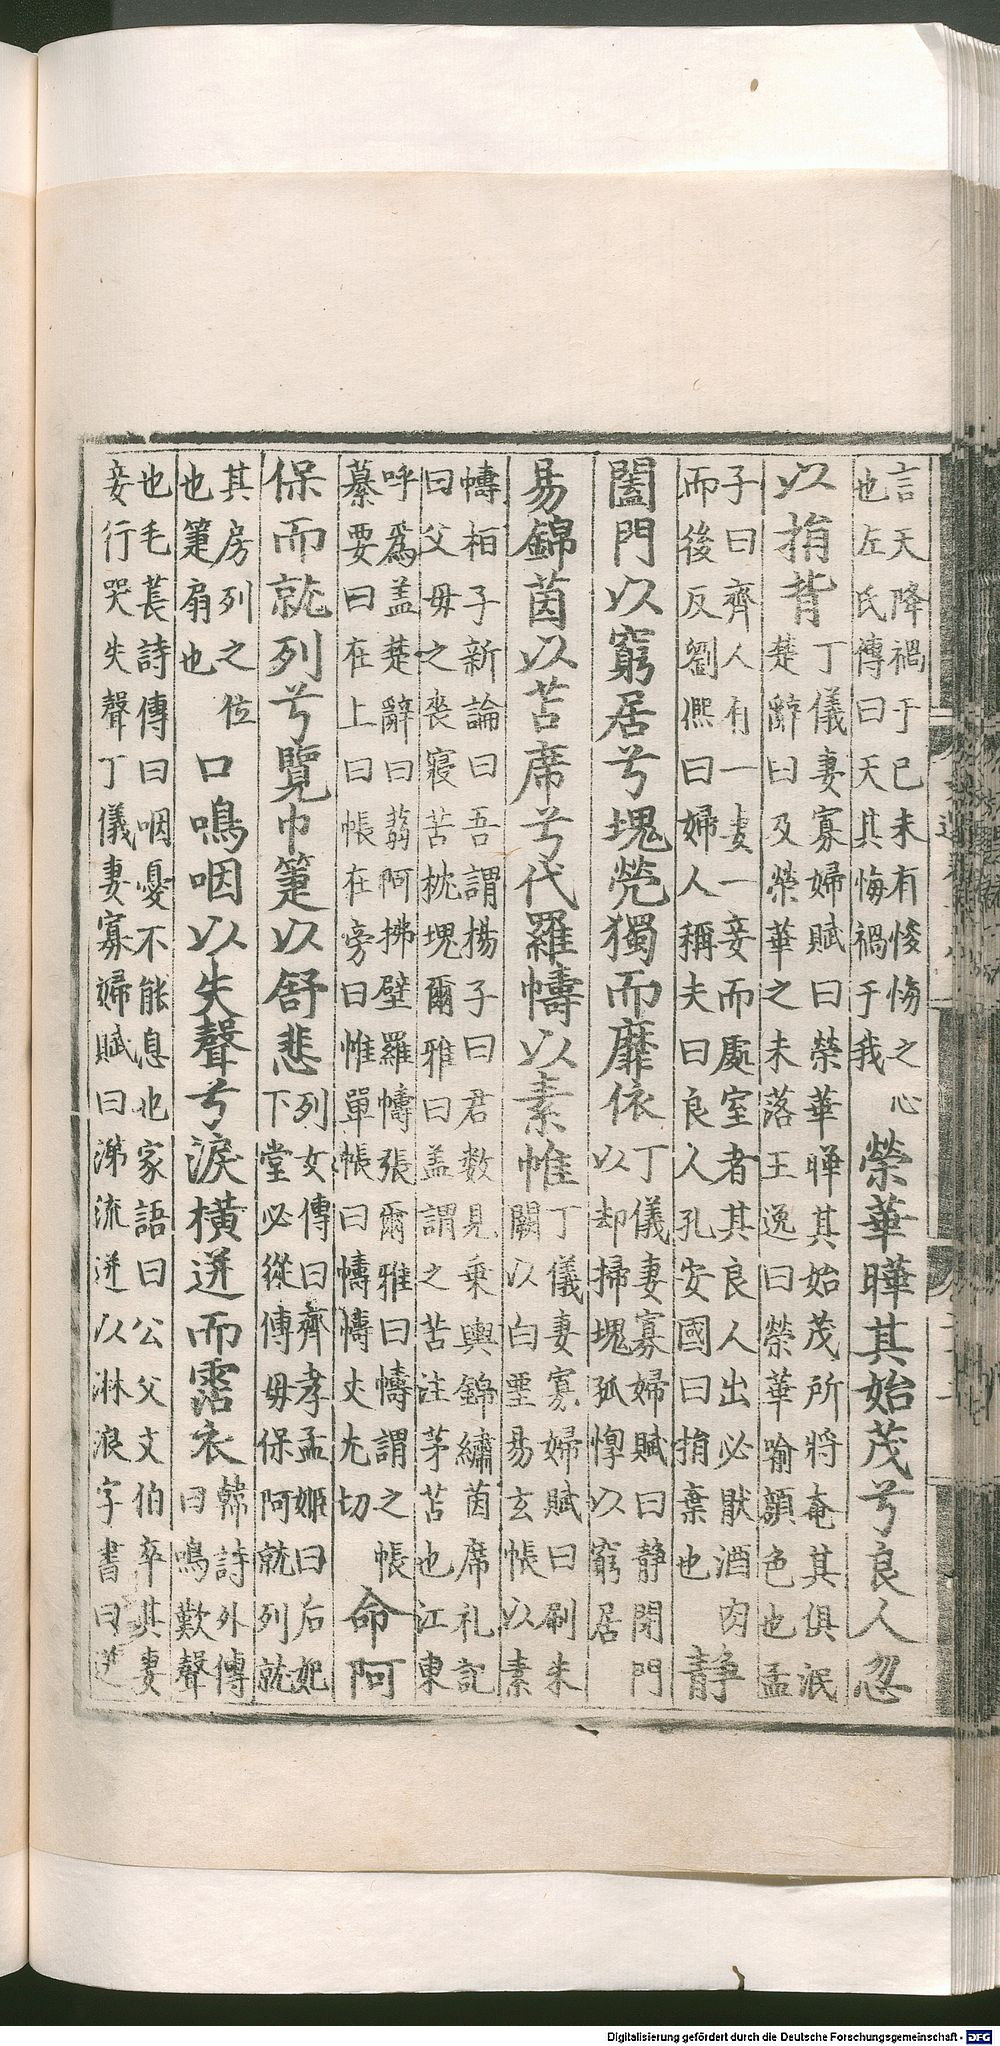 言天降禍于已未有悛悔之心
也左氏傳曰天其悔禍于我
榮華曄其始茂兮良人忽
以捐背
丁儀妻寡婦賦曰榮華曄其始茂所將奄其俱泯
楚辭曰及榮華之未落王逸曰榮華喻顔色也孟
子曰齊人有一妻一妾而處室者其良人出必猒酒肉
而後反劉熈曰婦人稱夫曰良人孔安國曰捐棄也
静
闔門以窮居兮塊煢獨而靡依
丁儀妻寡婦賦曰静閉門
以却掃塊孤惸以窮居
易錦茵以苫席兮代羅幬以素帷
丁儀妻寡婦賦曰刷朱
闕以白堊易玄帳以素
幬桓子新論曰吾謂揚子曰君數見乘輿錦繡茵席礼記
曰父毋之喪寢苫枕塊爾雅曰盖謂之苫注茅苫也江東
呼爲盖楚辭曰蒻阿拂壁羅幬張爾雅曰幬謂之帳
纂要曰在上曰帳在旁曰帷單帳曰幬幬丈尤切
命阿
保而就列兮覽巾箑以舒悲
列女傳曰齊孝孟姬曰后妃
下堂必從傅毋保阿就列就
其房列之位
也箑扇也
口鳴咽以失聲兮淚橫迸而霑衣
韓詩外傳
曰鳴歎聲
也毛萇詩傳曰咽憂不能息也家語曰公父文伯卒其妻
妾行哭失聲丁儀妻寡婦賦曰涕流迸以淋浪字書曰迸
Digitalisierung gefördert durch die Deutsche Forschungsgemeinschaft - DFG